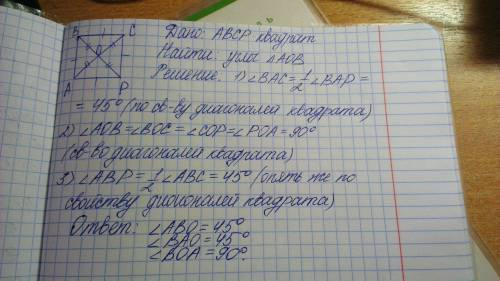 B C
O
A P
Дано: ABCP квадрат
Найти: углы △AOB
Решение: 1) ∠BAC = 1/2 ∠BAP =
= 45° (по св-ву диагоналей квадрата)
2) ∠AOB = ∠BOC = ∠COP = ∠POA = 90°
(св-во диагоналей квадрата)
3) ∠ABP = 1/2 ∠ABC = 45° (опять же по
свойству диагоналей квадрата)
Ответ: ∠ABO = 45°
∠BAO = 45°
∠BOA = 90°.